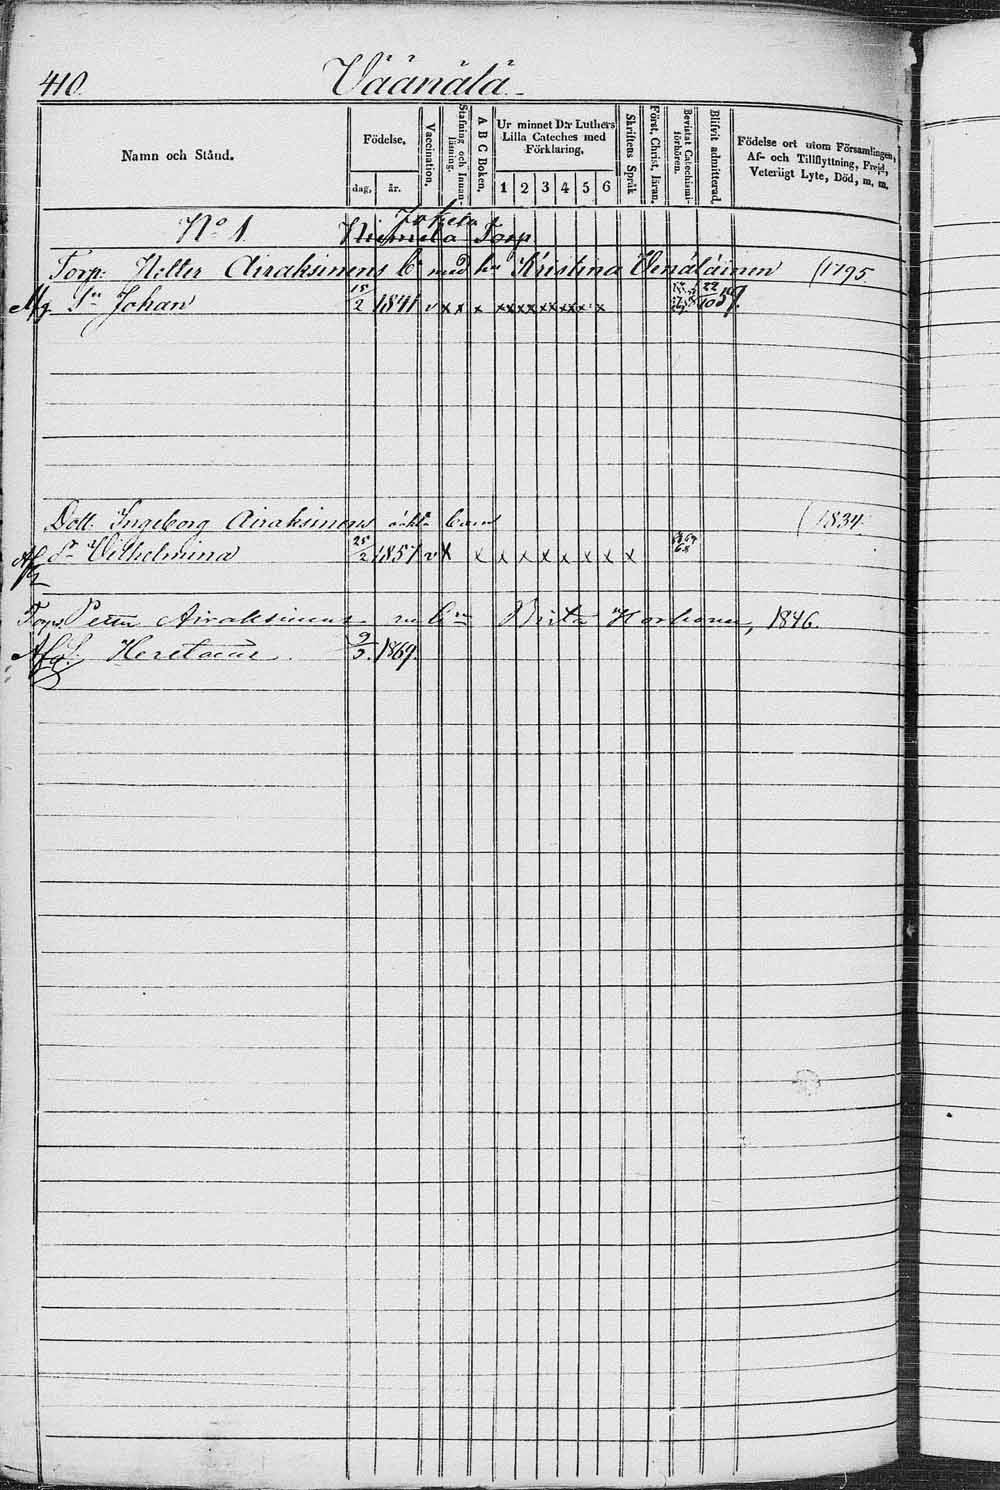 410.
Väänälä
Namn och Stånd.
Födelse.
dag.
år.
Vaccination.
Stafning och Innanläsning.
A B C Boken.
Ur minnet D:r Luthers Lilla Cateches med Förklaring.
1 2 3 4 5 6
Skriftens Språk
Först. Christ. läran.
Bevistat Catechismi-förhören.
Blifvit admitterad.
Födelse ort utom Församlingen, Af- och Tillflyttning, Frejd, Veterligt Lyte, Död, m. m.
Jokela
No 1. Torp
Torp: Airaksinens med Kristina Venäläinen (1795
Johan 15/2 1841 v x x x x x x x x x x x x 22/10 59.
Dott. Ingeborg Airaksinens barn (1834.
Wilhelmina 25/2 1851 v x x x x x x x x x
Torp. Petter Airaksinens Brita Korhonen, 1846.
9/3. 1869.